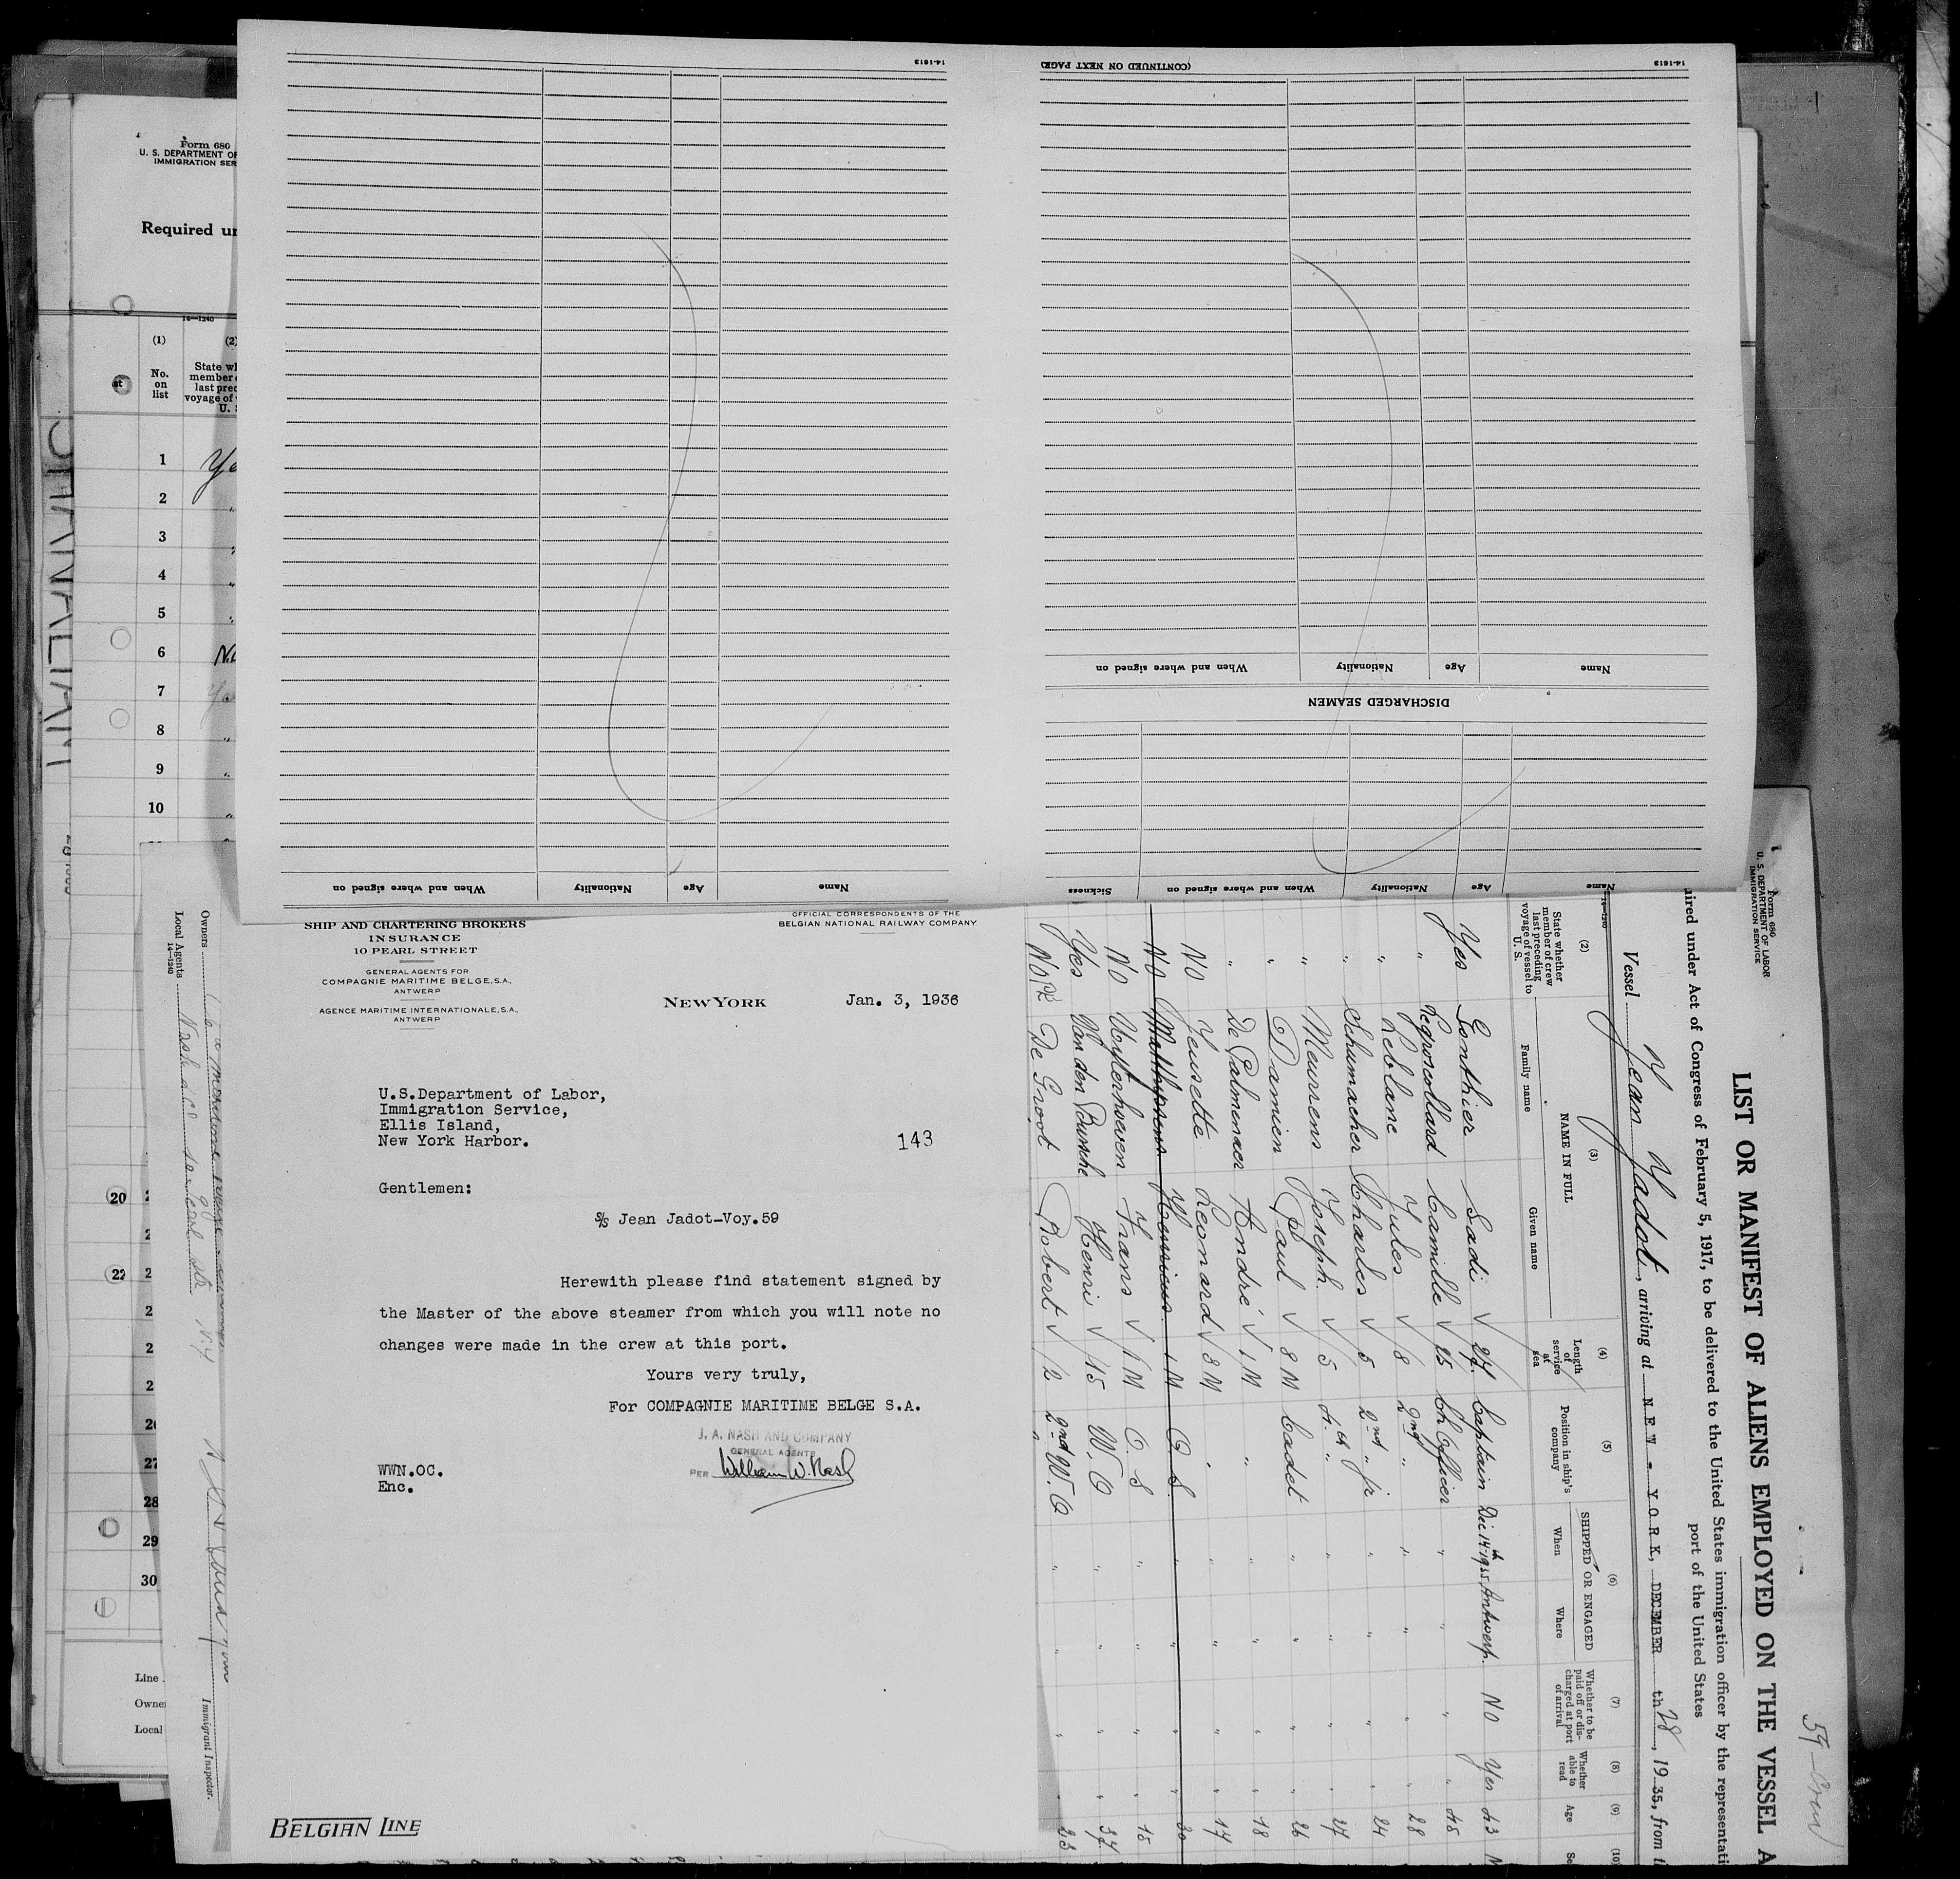 14-1613
(CONTINUED ON NEXT PAGE)
14-1613
When and where signed on
Nationality
Age
Name
When and where signed on
Nationality
Age
Name
DISCHARGED SEAMEN
Sickness
When and where signed on
Nationality
Age
Name
Form 680
U. S. DEPARTMENT OF
IMMIGRATION SER
Required un
14-1240
(1)
(2)
No.
on
list
State wh
member
last prec
voyage of
U. S
1
2
3
4
5
6
7
8
9
10
20
22
27
28
29
30
Line
Owner
Local
Owners
Local Agents
14-1240
Immigrant Inspector.
SHIP AND CHARTERING BROKERS
INSURANCE
10 PEARL STREET
GENERAL AGENTS FOR
COMPAGNIE MARITIME BELGE, S.A.,
ANTWERP
AGENCE MARITIME INTERNATIONALE, S.A.,
ANTWERP
OFFICIAL CORRESPONDENTS OF THE
BELGIAN NATIONAL RAILWAY COMPANY
NEW YORK Jan. 3, 1936
U.S.Department of Labor,
Immigration Service,
Ellis Island,
New York Harbor.
143
Gentlemen:
s/s Jean Jadot-Voy.59
Herewith please find statement signed by
the Master of the above steamer from which you will note no
changes were made in the crew at this port.
Yours very truly,
For COMPAGNIE MARITIME BELGE S.A.
J. A. NASH AND COMPANY
GENERAL AGENTS
PER William W. Nash
WWN.OC.
Enc.
BELGIAN LINE
Form 680
U. S. DEPARTMENT OF LABOR
IMMIGRATION SERVICE
LIST OR MANIFEST OF ALIENS EMPLOYED ON THE VESSEL A
ired under Act of Congress of February 5, 1917, to be delivered to the United States immigration officer by the representati
port of the United States
Vessel Jean Jadot, arriving at NEW-YORK, DECEMBER th 28, 1935, from t
14-1240
(2) (3) (4) (5) (6) (7) (8) (9) (10)
State whether
member of crew
last preceding
voyage of vessel to
U. S.
NAME IN FULL
Family name
Given name
Length
of
service
at
sea
Position in ship's
company
SHIPPED OR ENGAGED
When
Where
Whether to be
paid off or dis-
charged at port
of arrival
Whether
able to
read
Age
Se
Yes Gonthier Sadi √ 27 Captain Dec 14th 1935 Antwerp. NO Yes 43
" Legroscollard Camille √ 25 Ch Officer " " " " 48
" Leblanc Jules √ 8 2nd " " " " " 28
" Schumacher Charles √ 5 2nd " jr " " " " 24
" Meurrens Joseph √ 5 4th " " " " " 27
" Damien Paul √ 8 M Cadet " " " " 26
" De Palmenaer André √ 1 M " " " " " 18
NO Jeusette Leonard √ 3 M " " " " " 17
NO Matthyssens Henricus 1 M O S. " " " " 30
NO Uytterhoeven Frans √ 1 M O. S " " " " 18
Yes Van den Bussche Henri √ 15 W. O " " " " 37
NO De Groot Robert √ 2 2nd W. O " " " " 23